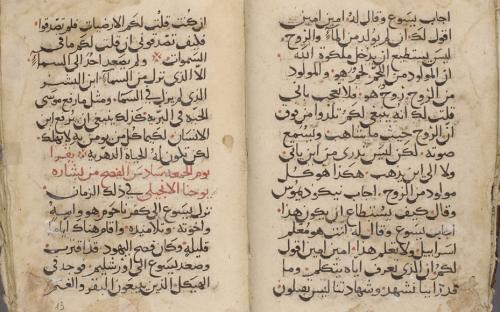 اجاب يسوع وقال له امين امين
اقول لك ان لم يولد من الماء والروح
ليس يستطيع ان يدخل ملكوة الله
ان المولود من اللحم لحم هو والمولود
من الروح روح هو ولا يعجب باني
قلت لك انه ينبغي لكم تلدوا من فوق
ان الروح حيث ما تشا هب وتستمع
صوته لكن ليس يدري من اين ياتي
ولا الى اين يذهب هكذا هو كل
مولود من الروح اجاب نيكوديموس
وقال كيف يستطاع ان يكون هذا
اجاب يسوع وقال له انت هو معلم
اسراييل ولا تعلم هذا امين امين اقول
لك ان الذي نعرف اياه نتكلم وما
قد راينا نشهد وشهادتنا ليس تقبلون
ان كنت قلت لكم الارضيات فلم تصدقوا
فكيف تصدقوني ان قلت لكم ما في
السموات ولم يصعد احد الى السما
الا الذي نزل من السما ابن البشر
الذي لم يزل في السما ومثل ما رفع موسى
الحية في البرية كذلك ينبغي ان يرفع ابن
الانسان لكيما كل من يومن به لا يهلك
لكن تكون له الحياة الدهرية يقرا
يوم الجمعه سادس الفصح من بشاره
يوحنا الانجيلي في ذلك الزمان
نزل يسوع الى كفرناحوم هو وامه
واخوته وتلاميذه واقام هناك اياما
قليلة وكان فصح اليهود قد اقترب
وصعد يسوع الى اورشليم فوجد في
الهيكل الذين يبيعون البقر والغنم
13